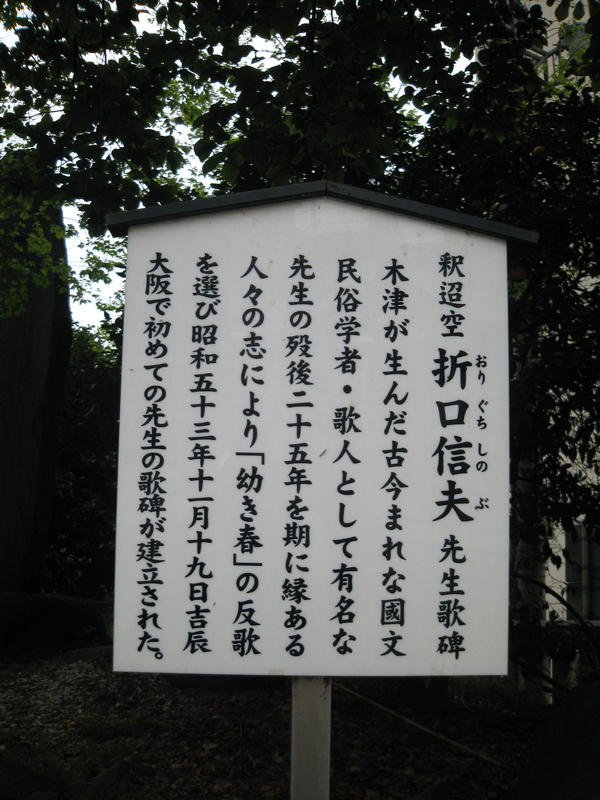 釈迢空 折口信夫 先生歌碑
おり ぐち しの ぶ
木津が生んだ古今まれな國文
民俗学者・歌人として有名な
先生の歿後二十五年を期に縁ある
人々の志により「幼き春」の反歌
を選び昭和五十三年十一月十九日吉辰
大阪で初めての先生の歌碑が建立された。